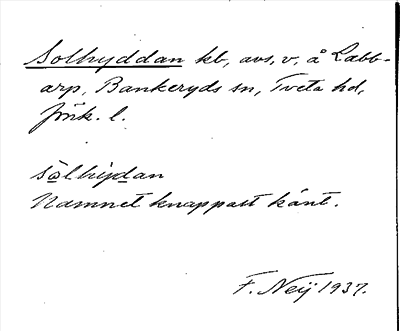 Solhyddan kb, avs, v, å Labb-
arp, Bankeryds sn, Tveta hd,
Jönk. l.
sòlhydan
Namnet knappast känt.
F. Neij 1937.